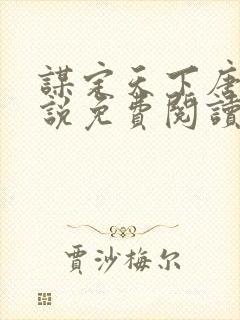 謀定天下唐
說免費閱讀
賈沙梅尔